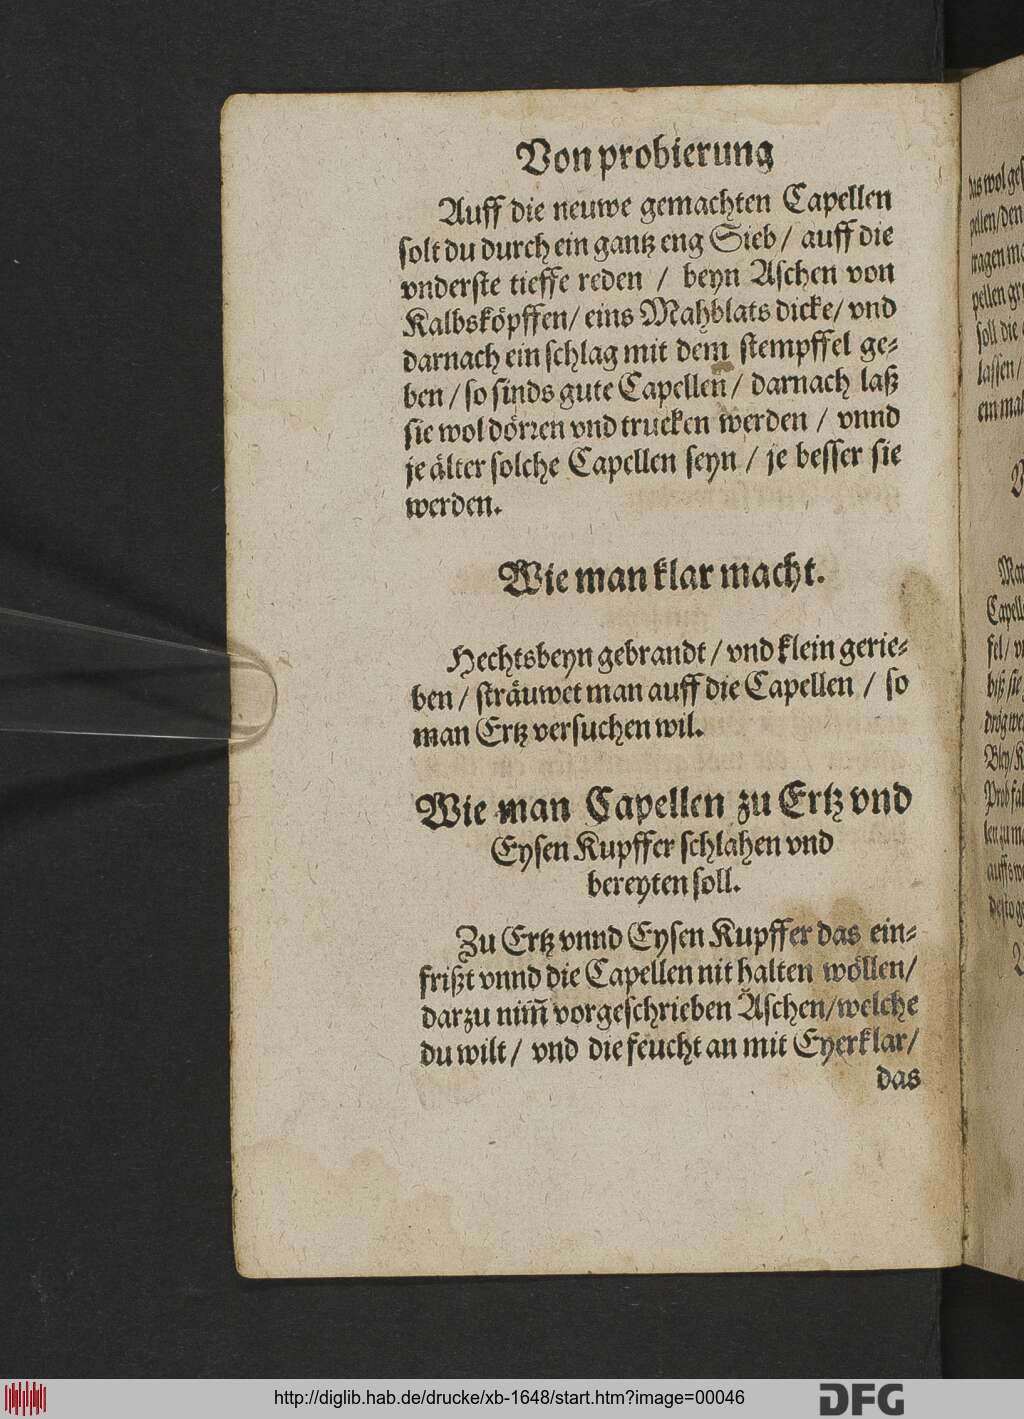 Von probierung
Auff die neuwe gemachten Capellen
solt du durch ein gantz eng Sieb / auff die
vnderste tieffe reden / beyn Aschen von
Kalbsköpffen / eins Mahblats dicke / vnd
darnach ein schlag mit dem stempffel ge-
ben / so sinds gute Capellen / darnach laß
sie wol dörren vnd trucken werden / vnnd
je älter solche Capellen seyn / je besser sie
werden.
Wie man klar macht.
Hechtsbeyn gebrandt / vnd klein gerie-
ben / sträuwet man auff die Capellen / so
man Ertz versuchen wil.
Wie man Capellen zu Ertz vnd
Eysen Kupffer schlahen vnd
bereyten soll.
Zu Ertz vnnd Eysen Kupffer das ein-
frißt vnnd die Capellen nit halten wöllen /
darzu nim̃ vorgeschrieben Äschen / welche
du wilt / vnd die feucht an mit Eyerklar /
das
das wol
pellen / den
soll die
lassen /
ein mal
http://diglib.hab.de/drucke/xb-1648/start.htm?image=00046
DFG